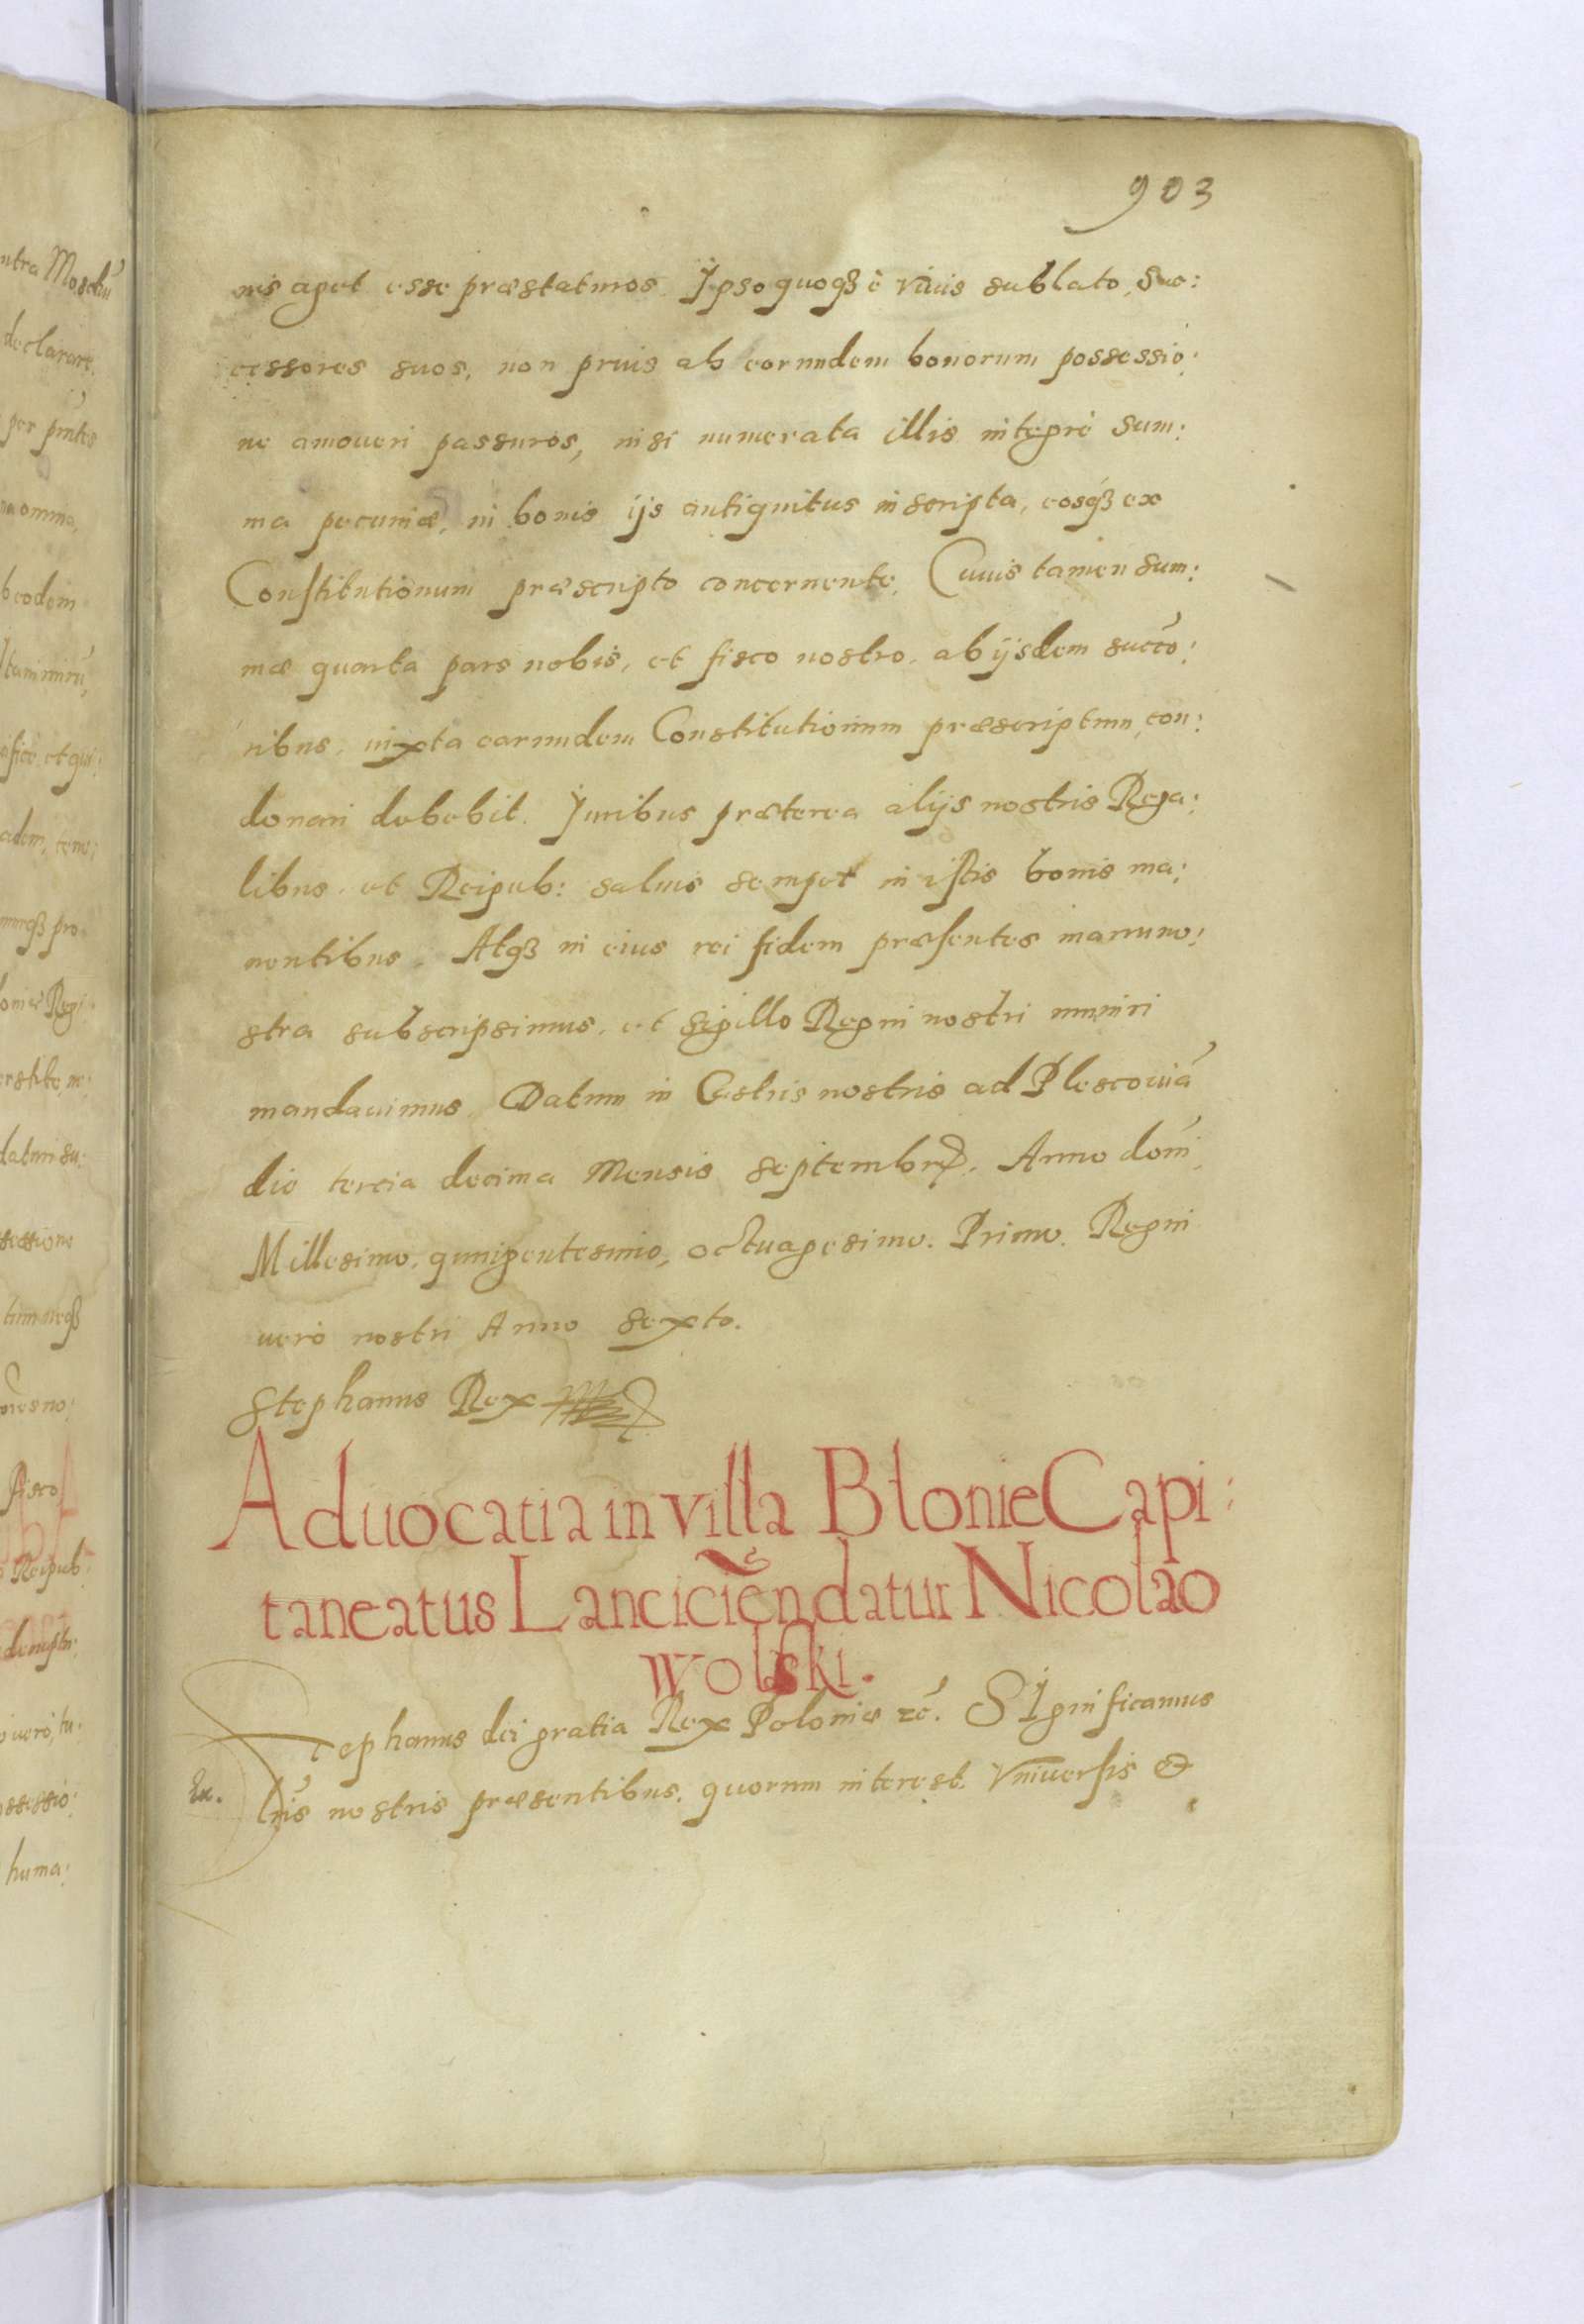 903
nis aget esse præstaturos. Ipso quoqȝ è viuis sublato, suc:
cessores suos, non prius ab eorundem bonorum possessio:
ne amoueri passuros, nisi numerata illis integrè sum:
ma pecuniæ, in bonis ijs antiquitus inscripta, eosqȝ ex
Constitutionum præscripto concernente. Cuius tamen sum:
mæ quarta pars nobis, et fisco nostro, ab ijsdem succõ:
ribus, iuxta earundem Constitutionum præscriptum, con:
donari debebit. Iuribus præterea alijs nostris Rega:
libus, et Reipub: saluis semper in istis bonis ma:
nentibus. Atqȝ in eius rei fidem præsentes manu no:
stra subscripsimus, et sigillo Regni nostri muniri
mandauimus. Datum in Castris nostris ad Plescouiã
die tercia decima Mensis Septembris. Anno domĩ
Millesimo, quingentesimo, octuagesimo. Primo. Regni
uero nostri Anno sexto.
Stephanus Rex
Aduocatia in villa Blonie Capi:
taneatus Lancicieñ datur Nicolao
Wolski.
Stephanus dei gratia Rex Poloniæ ꝛc̃. SIgnificamus
Ex.
lrĩs nostris præsentibus, quorum interest. Vniuersis et
ntra Moschũ
declarare
per pñtes
na omnia,
b eodem
Itaminirũ
ifice et qui:
adem, tene:
umqȝ pro
loniæ Regi
erstite, ne:
daturi su:
sessione
tumneqȝ
ores no:
Fisco
Reipub:
de nuptu:
uero, tu:
ssessio:
huma: